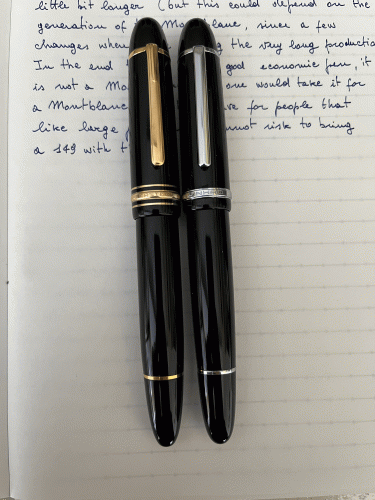 little bit longer (but this could depend on the
generation of Montblanc, since a few
changes where the very long productio
In the end good economic pen, it
is not a Mo one would take it for
a Montblanc for people that
like large not risk to bring
a 149 with t